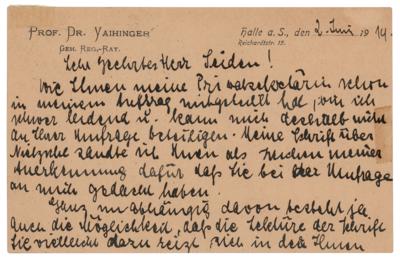 PROF. DR. VAIHINGER
GEH. REG.-RAT.
Halle a. S., den 2. Juni 1914.
Reichardtstr. 15.
Sehr geehrter Herr Seiden!
Wie Ihnen meine Privatsekretärin schon
in meinem Auftrag mitgeteilt hat, bin ich
schwer leidend u. kann mich deshalb nicht
an Ihrer Umfrage beteiligen. Meine Schrift über
Nietzsche sandte ich Ihnen als Zeichen meiner
Anerkennung dafür, daß Sie bei der Umfrage
an mich gedacht haben.
Ganz unabhängig davon besteht ja
auch die Möglichkeit, daß die Lektüre der Schrift
Sie vielleicht dazu reizt, sich in dem Ihnen